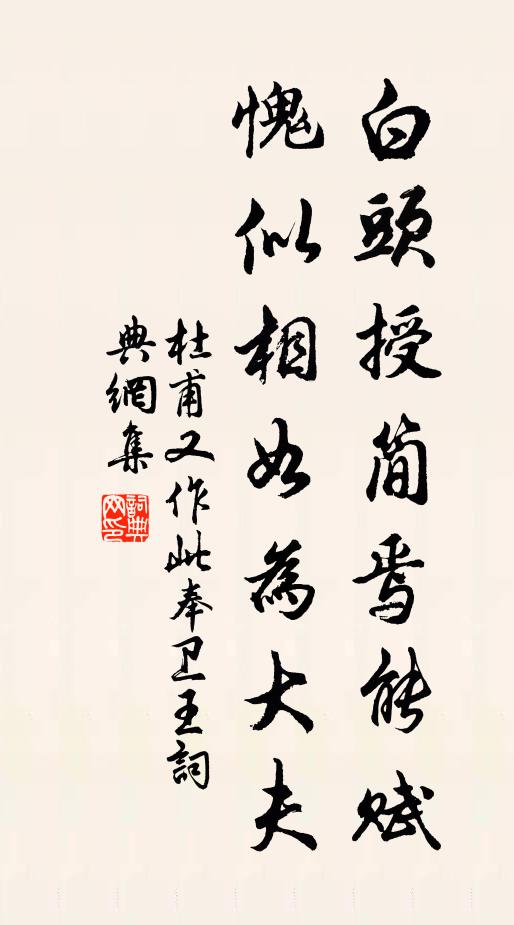 白頭授简焉能赋
愧似相如為大夫
杜甫又作此奉卫王詞
典網集
詞典
网印